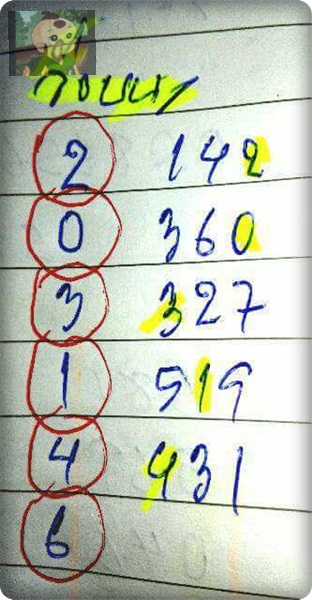 2 142
0 360
3 327
1 519
4 431
6